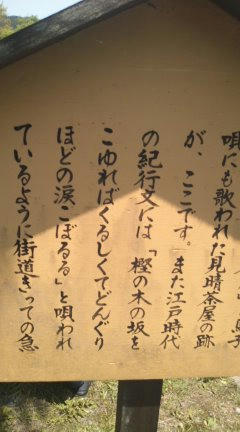 唄にも歌われた見晴茶屋の跡
が、ここです。また江戸時代
の紀行文には「樫の木の坂を
こゆればくるしくてどんぐり
ほどの涙こぼるる」と唄われ
ているように街道きっての急